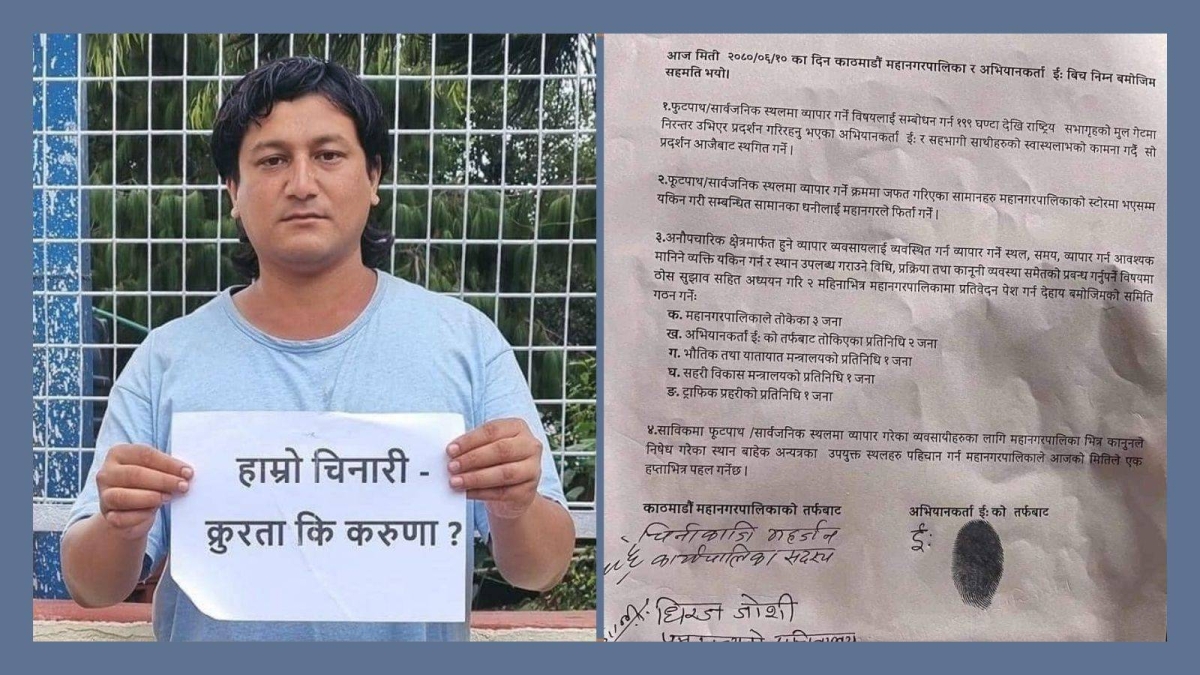 हाम्रो चिनारी -
क्रुरता कि करुणा ?
आज मिती २०८०/०६/१० का दिन काठमाडौं महानगरपालिका र अभियानकर्ता ईः बिच निम्न बमोजिम
सहमति भयो।
१.फूटपाथ/सार्वजनिक स्थलमा व्यापार गर्ने विषयलाई सम्बोधन गर्न १९९ घण्टा देखि राष्ट्रिय सभागृहको मुल गेटमा
निरन्तर उभिएर प्रदर्शन गरिरहनु भएका अभियानकर्ता ईः र सहभागी साथीहरुको स्वास्थलाभको कामना गर्दै सो
प्रदर्शन आजैबाट स्थगित गर्ने ।
२.फूटपाथ/सार्वजनिक स्थलमा व्यापार गर्ने क्रममा जफत गरिएका सामानहरु महानगरपालिकाको स्टोरमा भएसम्म
यकिन गरी सम्बन्धित सामानका धनीलाई महानगरले फिर्ता गर्ने ।
३.अनौपचारिक क्षेत्रमार्फत हुने व्यापार व्यवसायलाई व्यवस्थित गर्न व्यापार गर्ने स्थल, समय, व्यापार गर्न आवश्यक
मानिने व्यक्ति यकिन गर्न र स्थान उपलब्ध गराउने विधि, प्रक्रिया तथा कानूनी व्यवस्था समेतको प्रबन्ध गर्नुपर्ने विषयमा
ठोस सुझाव सहित अध्ययन गरि २ महिनाभित्र महानगरपालिकामा प्रतिवेदन पेश गर्न देहाय बमोजिमको समिति
गठन गर्नेः
क. महानगरपालिकाले तोकेका ३ जना
ख. अभियानकर्ता ईः को तर्फबाट तोकिएका प्रतिनिधि २ जना
ग. भौतिक तथा यातायात मन्त्रालयको प्रतिनिधि १ जना
घ. सहरी विकास मन्त्रालयको प्रतिनिधि १ जना
ङ. ट्राफिक प्रहरीको प्रतिनिधि १ जना
४.साविकमा फूटपाथ /सार्वजनिक स्थलमा व्यापार गरेका व्यवसायीहरुका लागि महानगरपालिका भित्र कानुनले
निषेध गरेका स्थान बाहेक अन्यत्रका उपयुक्त स्थलहरु पहिचान गर्न महानगरपालिकाले आजको मितिले एक
हप्ताभित्र पहल गर्नेछ ।
काठमाडौं महानगरपालिकाको तर्फबाट
चिनीकाजि महर्जन
कार्यपालिका सदस्य
धिरज जोशी
अभियानकर्ता ईः को तर्फबाट
ईः